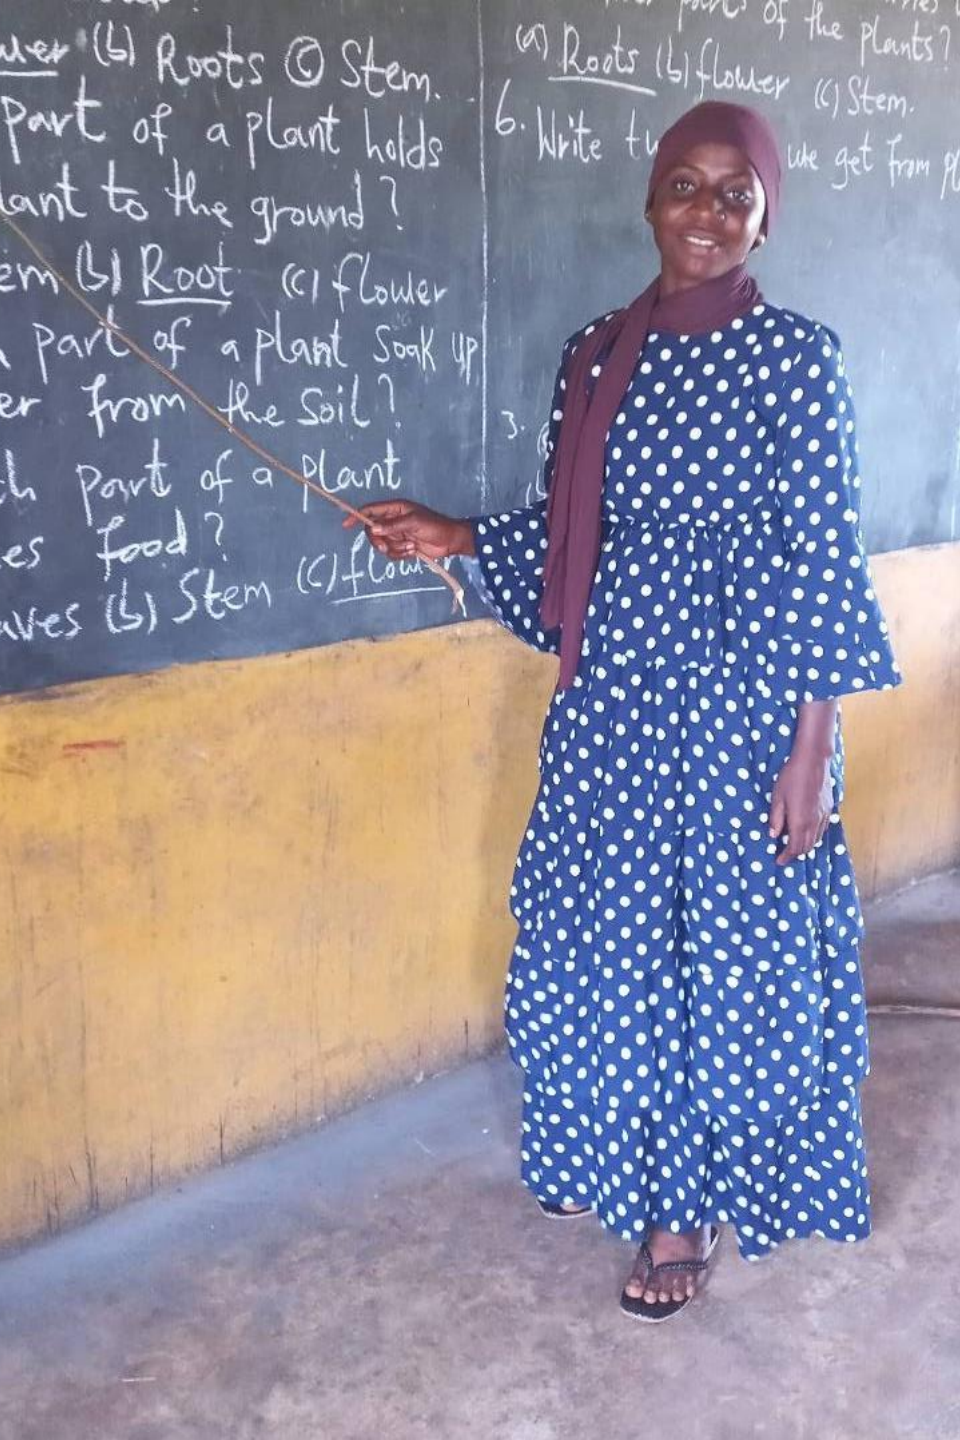 (b) Roots © Stem.
part of a plant holds
to the ground?
(b) Root (c) flower
part of a plant Soak up
from the Soil?
part of a plant
food?
(b) Stem (c) flower
parts of the plants?
(a) Roots (b) flower (c) Stem.
6. Write we get from
3.